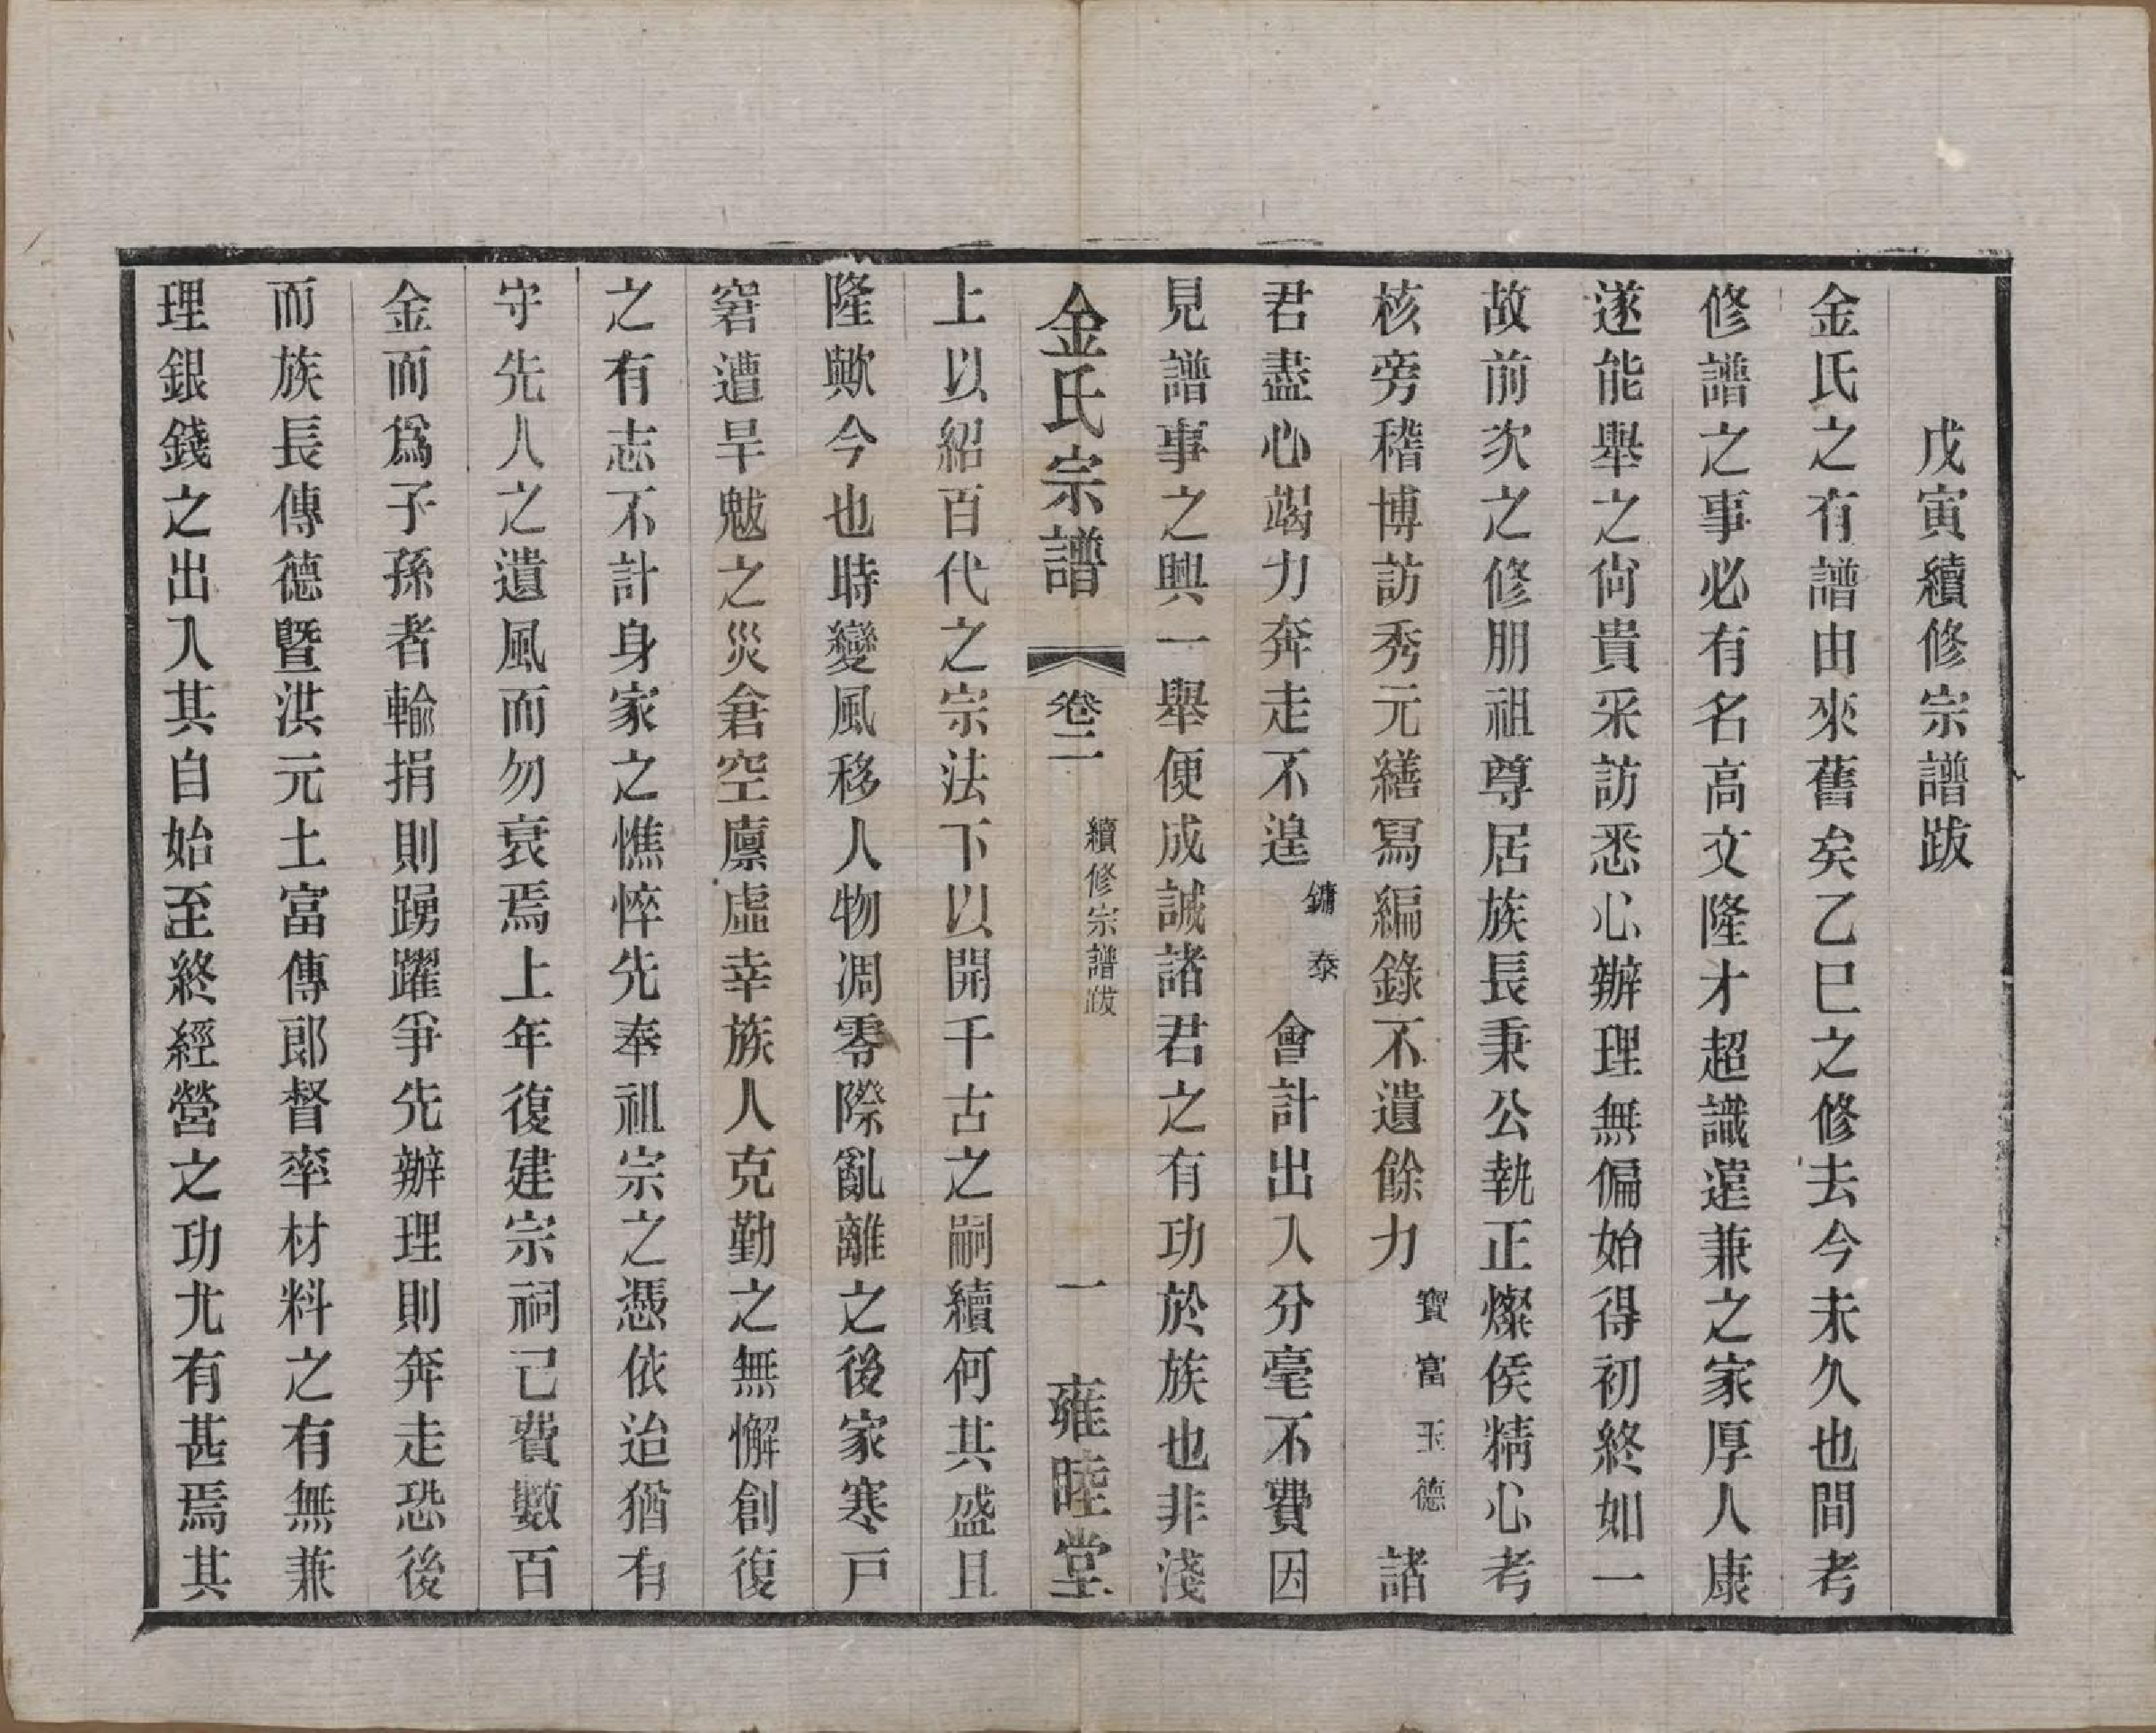 戊寅續修宗譜跋
金氏之有譜由來舊矣乙巳之修去今未久也間考
修譜之事必有名高文隆才超識遠兼之家厚人康
遂能舉之尙貴采訪悉心辦理無偏始得初終如一
故前次之修朋祖尊居族長秉公執正燦侯精心考
核旁稽博訪秀元繕寫編錄不遺餘力寶富玉德諸
君盡心竭力奔走不遑鏞泰會計出入分毫不費因
見譜事之興一舉便成誠諸君之有功於族也非淺
金氏宗譜 卷二 續修宗譜跋 一 雍睦堂
上以紹百代之宗法下以開千古之嗣續何其盛且
隆歟今也時變風移人物凋零際亂離之後家寒戸
窘遭旱魃之災倉空廪虛幸族人克勤之無懈創復
之有志不計身家之憔悴先奉祖宗之憑依迨猶有
守先人之遺風而勿衰焉上年復建宗祠已費數百
金而爲子孫者輸捐則踴躍爭先辦理則奔走恐後
而族長傳德暨洪元土富傳郎督率材料之有無兼
理銀錢之出入其自始至終經營之功尤有甚焉其